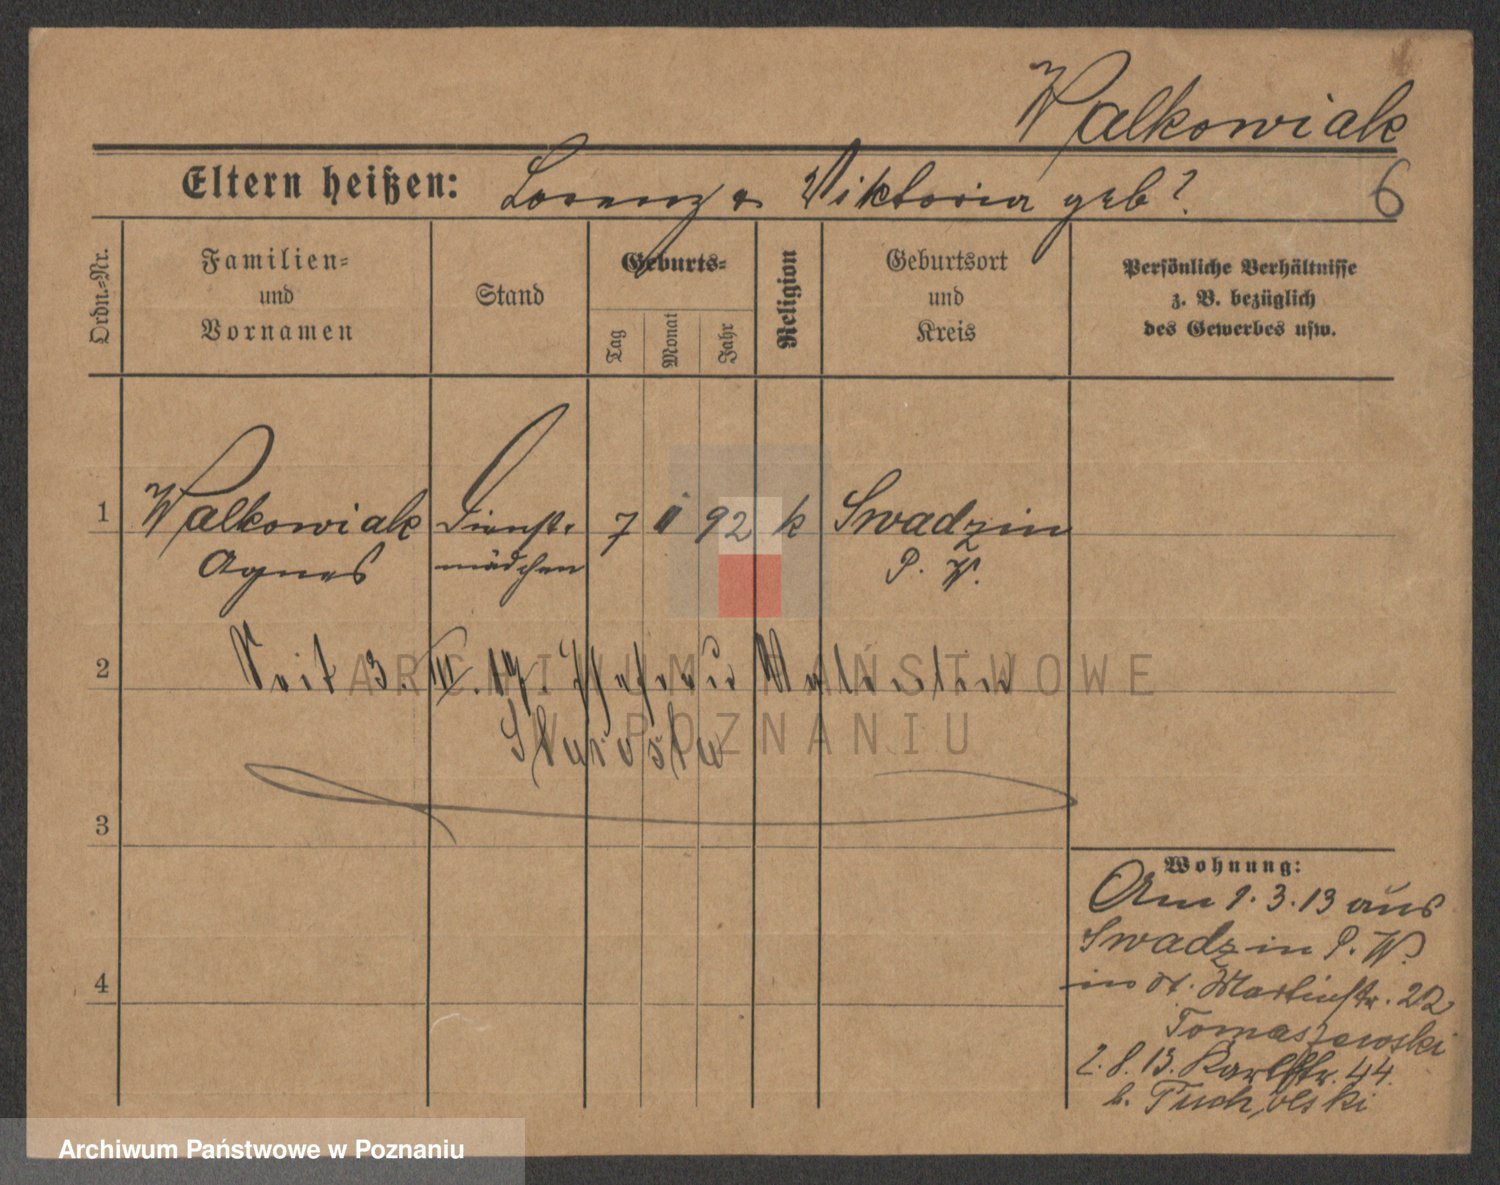 Walkowiak
Eltern heißen: Lorenz u Viktoria geb?
6
Ordn.-Nr.
Familien-
und
Vornamen
Stand
Geburts-
Tag
Monat
Jahr
Religion
Geburtsort
und
Kreis
Persönliche Verhältnisse
z. B. bezüglich
des Gewerbes usw.
1
Walkowiak
Agnes
Dienst-
mädchen
7
92
k
Swadzin
P. W.
2
Seit 3. III. 17. Ehefrau Valentin
Skurosta
3
4
Wohnung:
Am 1.3.13 aus
Swadzin P. W.
in St. Martinstr. 22
Tomaszewski
2.8.13. Karlstr. 44.
b. Tucholski
ARCHIWUM PAŃSTWOWE
W POZNANIU
Archiwum Państwowe w Poznaniu